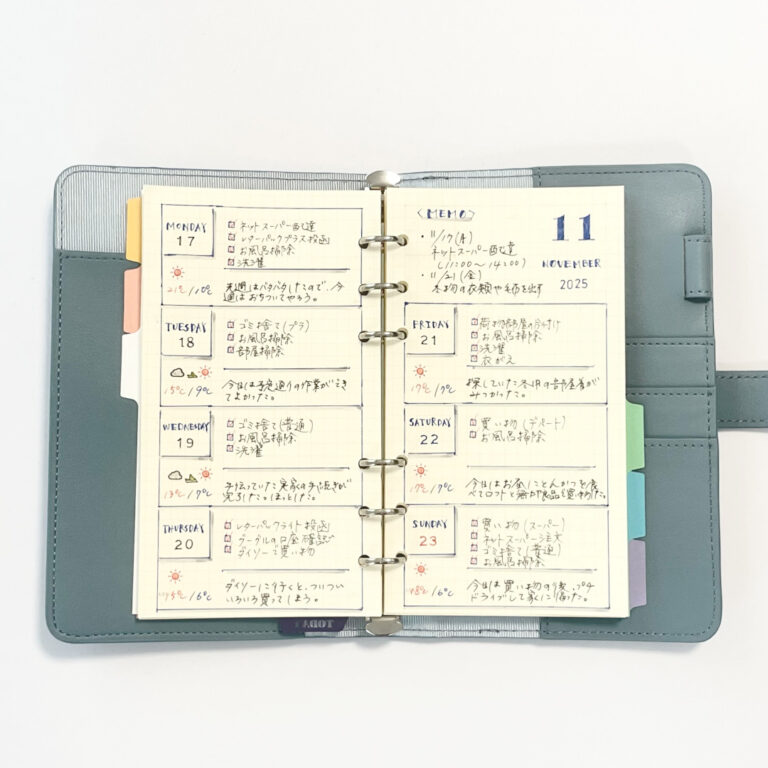 MONDAY
17
ネットスーパー配達
レターパックプラス投函
お風呂掃除
洗濯
21℃/10℃
先週はバタバタしたので、今
週はおちついてやろう。
TUESDAY
18
ゴミ捨て(プラ)
お風呂掃除
部屋掃除
15℃/9℃
今日は予定通りの作業ができ
てよかった。
WEDNESDAY
19
ゴミ捨て(普通)
お風呂掃除
洗濯
13℃/7℃
手伝っていた実家の手続きが
完了した。ほっとした。
THURSDAY
20
レターパックライト投函
グーグルの口座確認
ダイソーで買い物
/6℃
ダイソーに行くと、ついつい
いろいろ買ってしまう。
〈MEMO〉
・11/17(月)
ネットスーパー配達
(12:00〜14:00)
・11/21(金)
冬物の衣類や
を出す
11
NOVEMBER
2025
FRIDAY
21
荷物部屋の片付け
お風呂掃除
洗濯
衣がえ
17℃/7℃
探していた冬用の部屋着が
みつかった。
SATURDAY
22
買い物(デパート)
お風呂掃除
17℃/7℃
今日はお昼にとんかつを食
べてロフトと無印良品で買い物した。
SUNDAY
23
買い物(スーパー)
ネットスーパー注文
ゴミ捨て(普通)
お風呂掃除
18℃/6℃
今日は買い物の後、プチ
ドライブして家に帰った。
TODAY